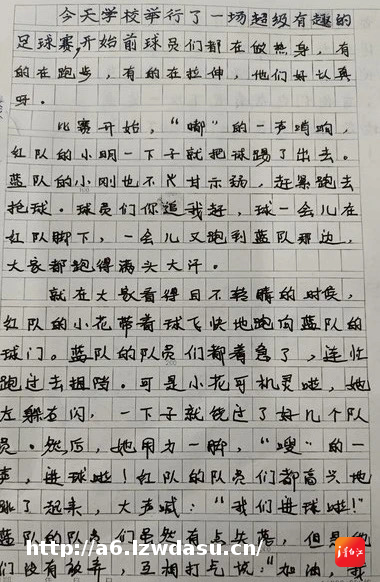 今天学校举行了一场超级有趣的
足球赛,开始前球员们都在做热身,有
的在跑步,有的在拉伸,他们好认真
呀。
比赛开始,“嘟”的一声哨响,
红队的小明一下子就把球踢了出去。
蓝队的小刚也不甘示弱,赶紧跑去
抢球。球员们你追我赶,球一会儿在
红队脚下,一会儿又跑到蓝队那边,
大家都跑得满头大汗。
就在大家看得目不转睛的时候,
红队的小花带着球飞快地跑向蓝队的
球门。蓝队的队员们都着急了,连忙
跑过去阻挡。可是小花可机灵啦,她
左躲右闪,一下子就绕过了好几个队
员。然后,她用力一脚,“嗖”的一
声,进球啦!红队的队员们都高兴地
跳了起来,大声喊:“我们进球啦!”
蓝队的队员们虽然有点失落,但是他
们没有放弃,互相打气说:“加油,我
http://a6.lzwdasu.cn/